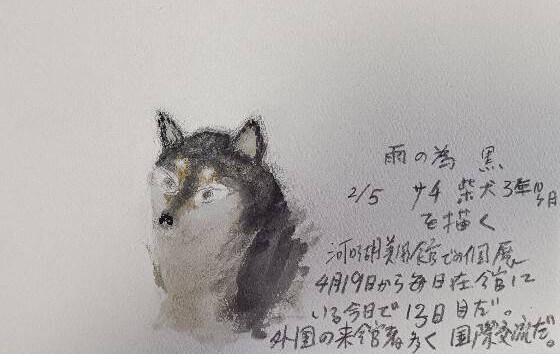 雨の為 黒
2/5 サチ 柴犬3年10ヶ月
を描く
河口湖美術館での個展
4月19日から毎日在館に
いる今日で13日目だ。
外国の来館者多く国際交流だ。